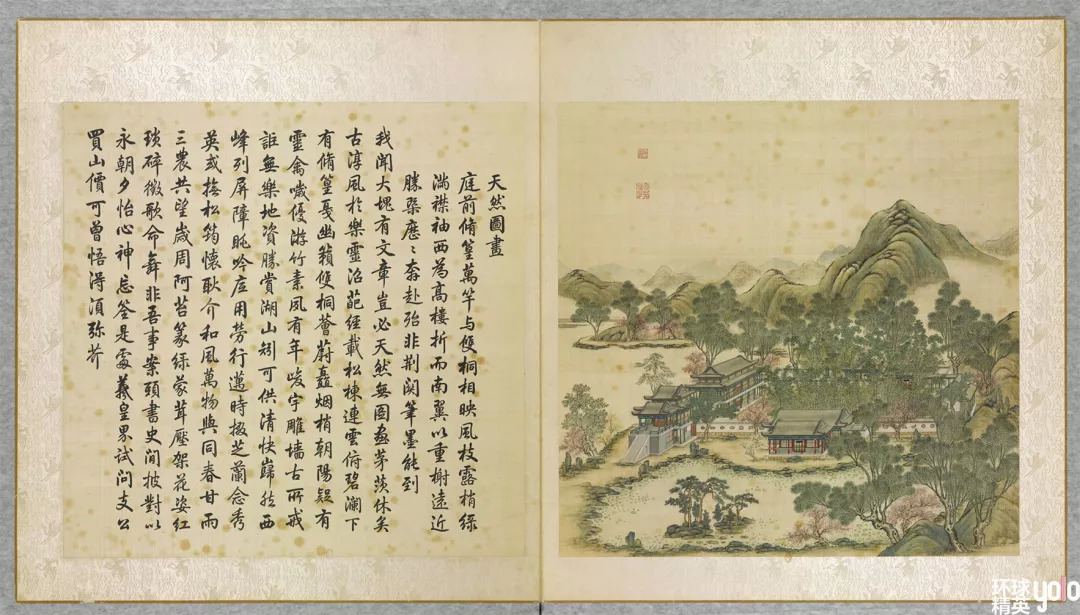 天然圖畫
庭前脩篁萬竿与雙桐相映風枝露梢綠
滿襟袖西為髙樓折而南翼以重榭遠近
勝槩歷〻奔赴殆非荆関筆墨能到
我聞大塊有文章豈必天然無圖畫茅茨休矣
古淳風於樂靈沼葩經載松棟連雲俯碧瀾下
有脩篁戞幽籟雙桐薈蔚矗烟梢朝陽疑有
靈禽噦優游竹素夙有年峻宇雕墻古所戒
詎無樂地資勝賞湖山矧可供清快巋然西
峰列屏障眺吟底用勞行邁時掇芝蘭念秀
英或撫松筠懷耿介和風萬物與同春甘雨
三農共望歲周阿苔篆綠蒙茸壓架花姿紅
瑣碎徵歌命舞非吾事案頭書史閒披對以
永朝夕怡心神忘筌是處羲皇界試問支公
買山價可曾悟得須彌芥
环球
精英
yolo